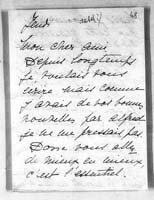 48
Jeudi
Mon cher ami
Depuis longtemps
je voulais vous
écrire mais comme
j'avais de vos bonnes
nouvelles par Alfred
je ne me pressais pas
Donc vous allez
de mieux en mieux
c'est l'essentiel.